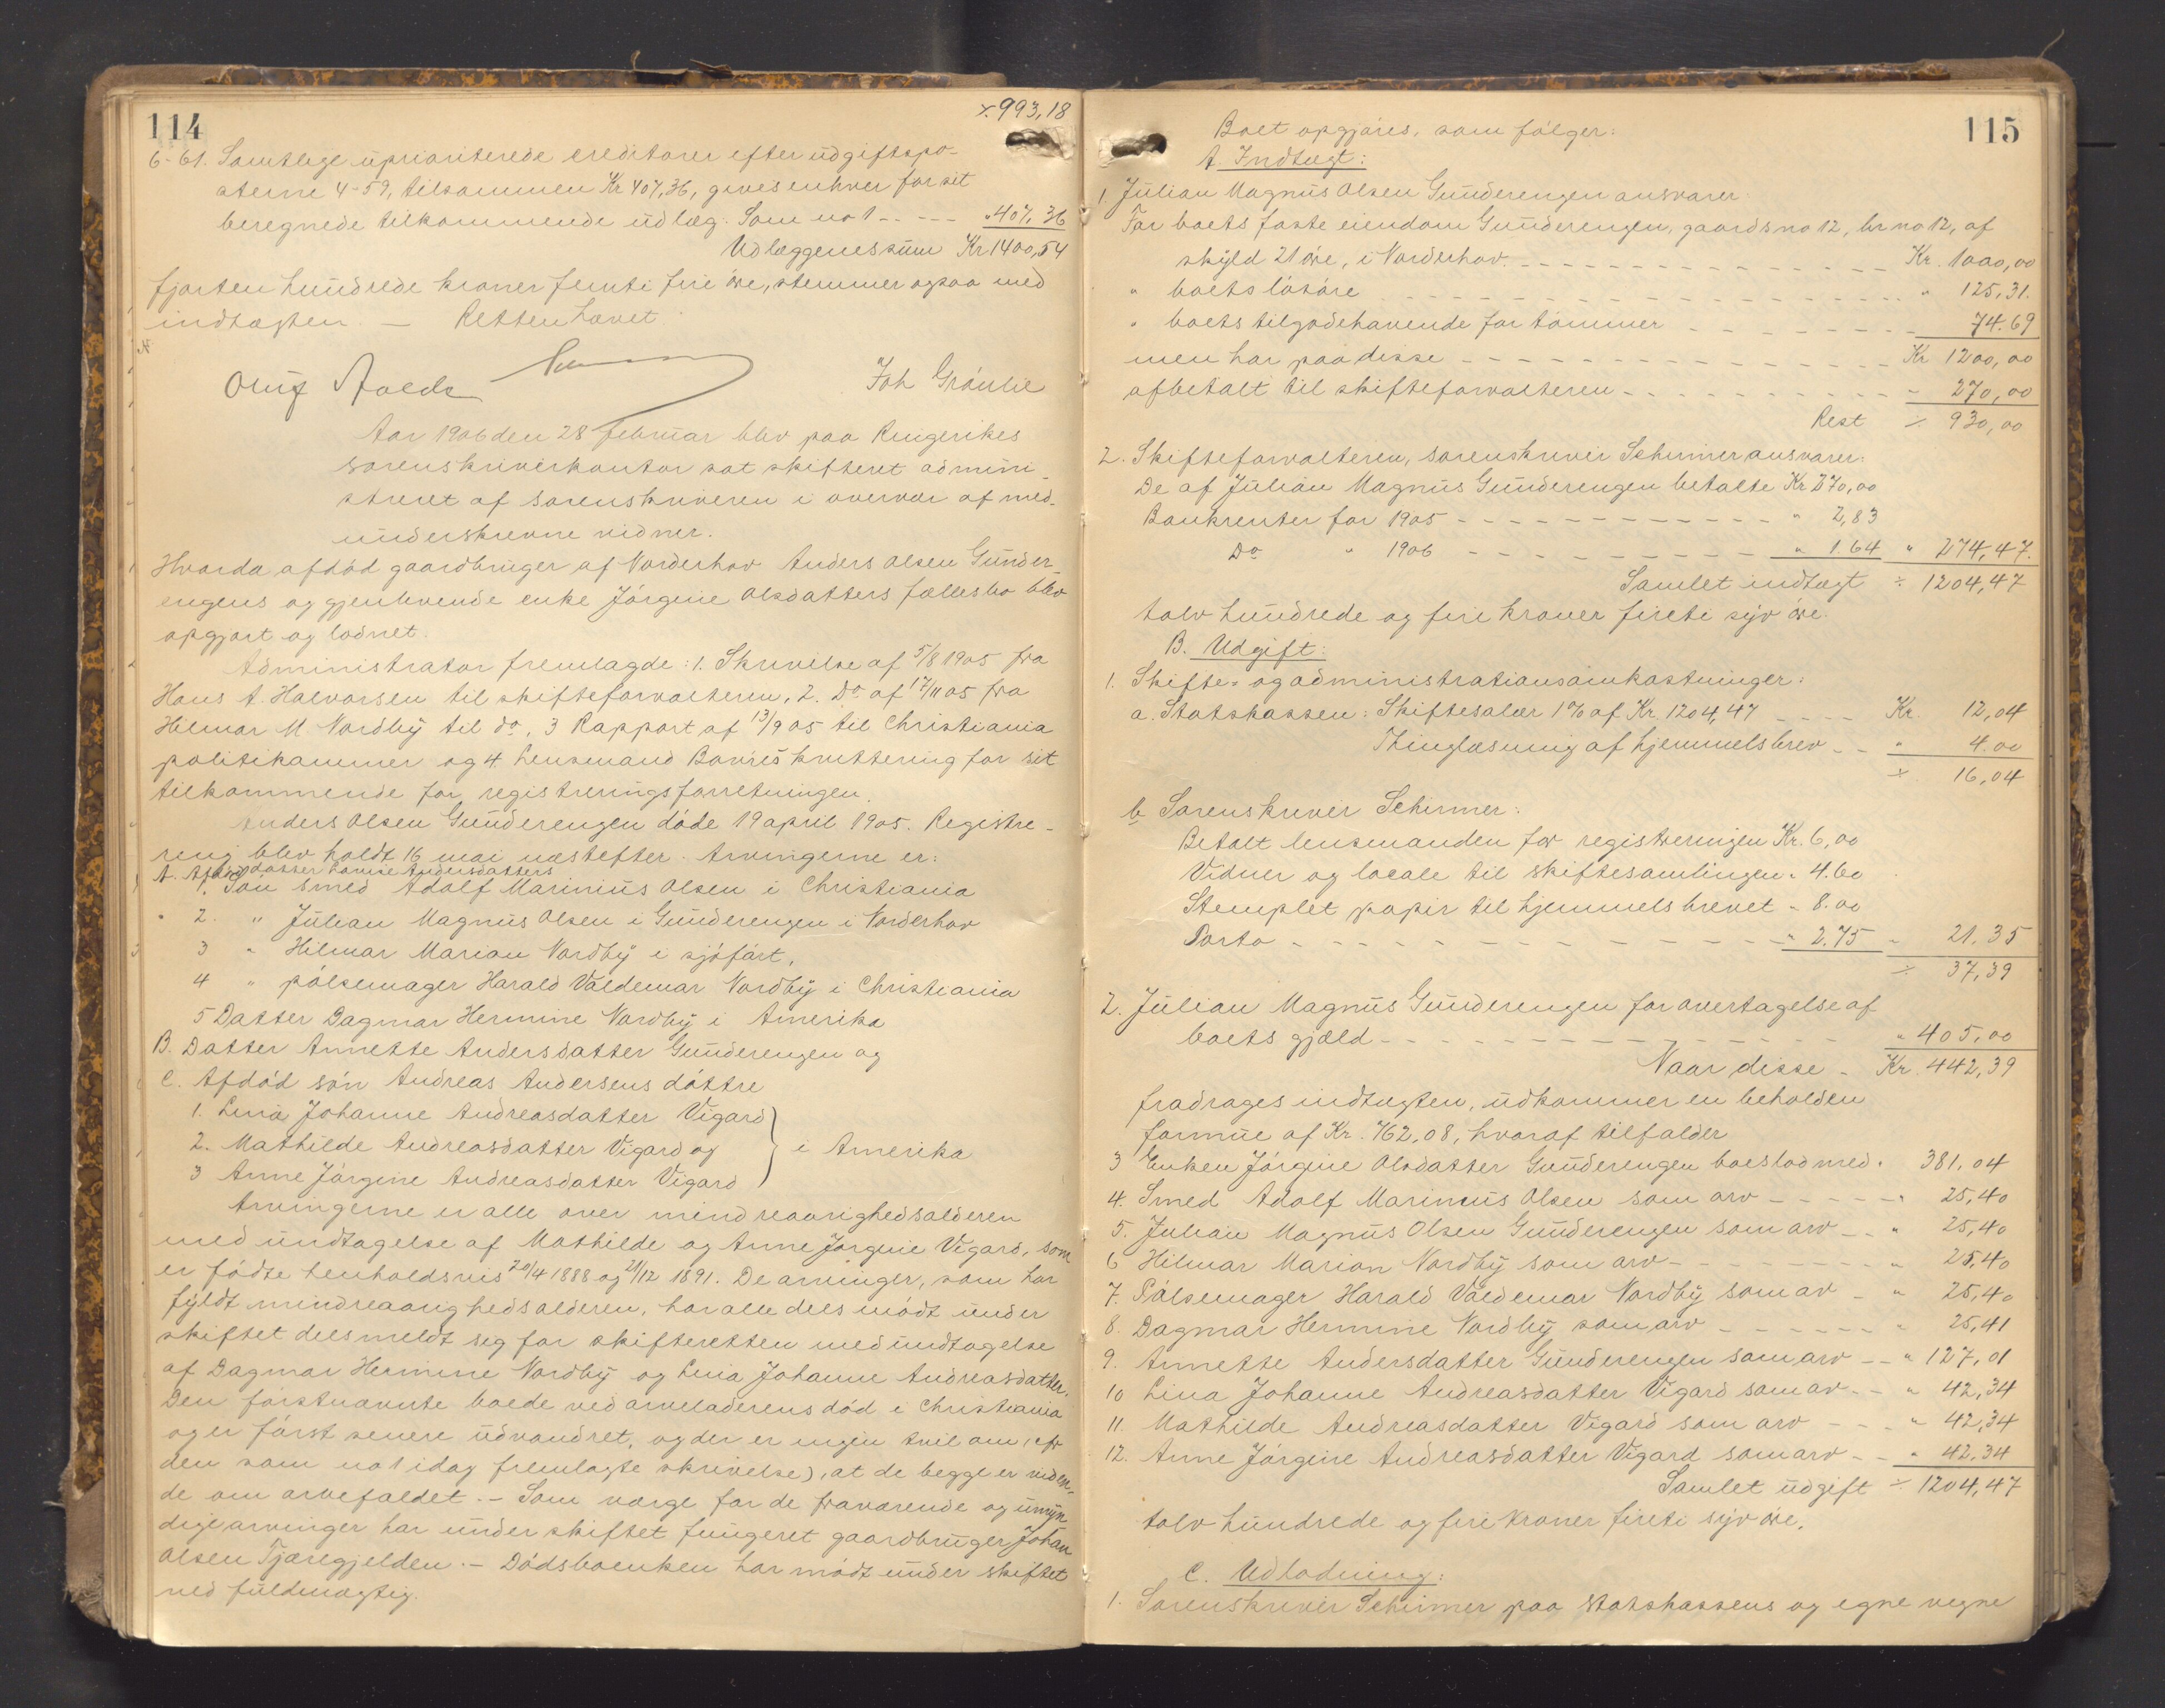 114
÷ 993,18
6-61. Samtlige uprioriterede creditorer efter udgiftspo-
sterne 4-59, tilsammen Kr 407,36, gives enhver for sit
beregnede tilkommende udlæg. Som no 1 - - - - „ 407,36
Udlæggenes sum Kr 1400,54
fjorten hundrede kroner femti fire øre, stemmer ogsaa med
indtægten. — Retten hævet.
Oluf
Joh Grønlie
Aar 1906 den 28 februar blev paa Ringerikes
sorenskriverkontor sat skifteret admini-
streret af sorenskriveren i overvær af med-
underskrevne vidner.
Hvorda afdød gaardbruger af Norderhov Anders Olsen Gunder-
engens og gjenlevende enke Jørgine Olsdatters fællesbo blev
opgjort og lodnet.
Administrator fremlagde: 1. Skrivelse af 5/8 1905 fra
Hans A. Halvorsen til skifteforvalteren, 2. Do. af 17/11 05 fra
Hilmar M Nordby til do, 3 Rapport af 13/9 05 til Christiania
politikammer og 4. Lensmand kvittering for sit
tilkommende for registreringsforretningen.
Anders Olsen Gunderengen døde 19 april 1905. Registre-
ring blev holdt 16 mai næstefter. Arvingerne er:
A. Afdød datter Andersdatters
1. Søn smed Adolf Marinius Olsen i Christiania
" 2. " Julian Magnus Olsen i Gunderengen i Norderhov
3 " Hilmar Marion Nordby i sjøfart,
4 " pølsemager Harald Valdemar Nordby i Christiania
5 Datter Dagmar Hermine Nordby i Amerika
B. Datter Annette Andersdatter Gunderengen og
C. Afdød søn Andreas Andersens døttre
1. Lina Johanne Andreasdatter Vigard
2. Mathilde Andreasdatter Vigard og } i Amerika
3 Anne Jørgine Andreasdatter Vigard
Arvingerne er alle over mindreaarighedsalderen
med undtagelse af Mathilde og Anne Jørgine Vigard, som
er fødte henholdsvis 20/4 1888 og 21/12 1891. De arvinger, som har
fyldt mindreaarighedsalderen, har alle dels mødt under
skiftet dels meldt seg for skifteretten med undtagelse
af Dagmar Hermine Nordby og Lina Johanne Andreasdatter.
Den førstnævnte boede ved arveladerens død i Christiania
og er først senere udvandret, og der er ingen tvil om (efr
den som no 1 idag fremlagte skrivelse), at de begge er viden-
de om arvefaldet. — Som værge for de fraværende og umyn
dige arvinger har under skiftet fungeret gaardbruger Johan
Olsen Tjæregjelden. — Dødsboenken har mødt under skiftet
ved fuldmægtig.
115
Boet opgjøres, som følger:
A. Indtægt:
1 Julian Magnus Olsen Gunderengen ansvarer
For boets faste eiendom Gunderengen, gaardsno 12, br no 12, af
skyld 21 øre, i Norderhov - - - - Kr. 1000,00
" boets løsøre - - - - " 125,31.
" boets tilgodehavende for tømmer - - - - 74.69
men har paa disse - - - - Kr 1200,00
afbetalt til skifteforvalteren - - - - " 270,00
Rest ÷ 930,00
2. Skifteforvalteren, sorenskriver Schirmer ansvarer:
De af Julian Magnus Gunderengen betalte Kr 270,00
Bankrenter for 1905 - - - - " 2,83
Do " 1906 - - - - " 1.64 " 274,47.
Samlet indtægt ÷ 1204,47
tolv hundrede og fire kroner fireti syv øre.
B. Udgift:
1. Skifte- og administrationsomkostninger:
a. Statskassen: Skiftesalær 1% af Kr. 1204,47 - - - - Kr. 12,04
Thinglæsning af hjemmelsbrev - - " 4.00
÷ 16,04
b Sorenskriver Schirmer:
Betalt lensmanden for registreringen Kr. 6,00
Vidner og locale til skiftesamlingen " 4.60
Stemplet papir til hjemmelsbrevet " 8.00
Porto - - - - " 2.75 " 21.35
÷ 37,39
2. Julian Magnus Gunderengen for overtagelse af
boets gjæld - - - - " 405,00
Naar disse - Kr. 442,39
fradrages indtægten, udkommer en beholden
formue af Kr. 762,08, hvoraf tilfalder
3 Enken Jørgine Olsdatter Gunderengen boeslod med " 381,04
4. Smed Adolf Marinius Olsen som arv - - - - " 25,40
5. Julian Magnus Olsen Gunderengen som arv - - " 25,40
6 Hilmar Marion Nordby som arv - - - - " 25,40
7. Pølsemager Harald Valdemar Nordby som arv - " 25,40
8. Dagmar Hermine Nordby som arv - - - - " 25,41
9. Annette Andersdatter Gunderengen som arv - - " 127,01
10 Lina Johanne Andreasdatter Vigard som arv - - " 42,34
11. Mathilde Andreasdatter Vigard som arv - - " 42,34
12. Anne Jørgine Andreasdatter Vigard som arv - - " 42,34
Samlet udgift ÷ 1204,47
tolv hundrede og fire kroner fireti syv øre.
C. Udlodning:
1. Sorenskriver Schirmer paa statskassens og egne vegne